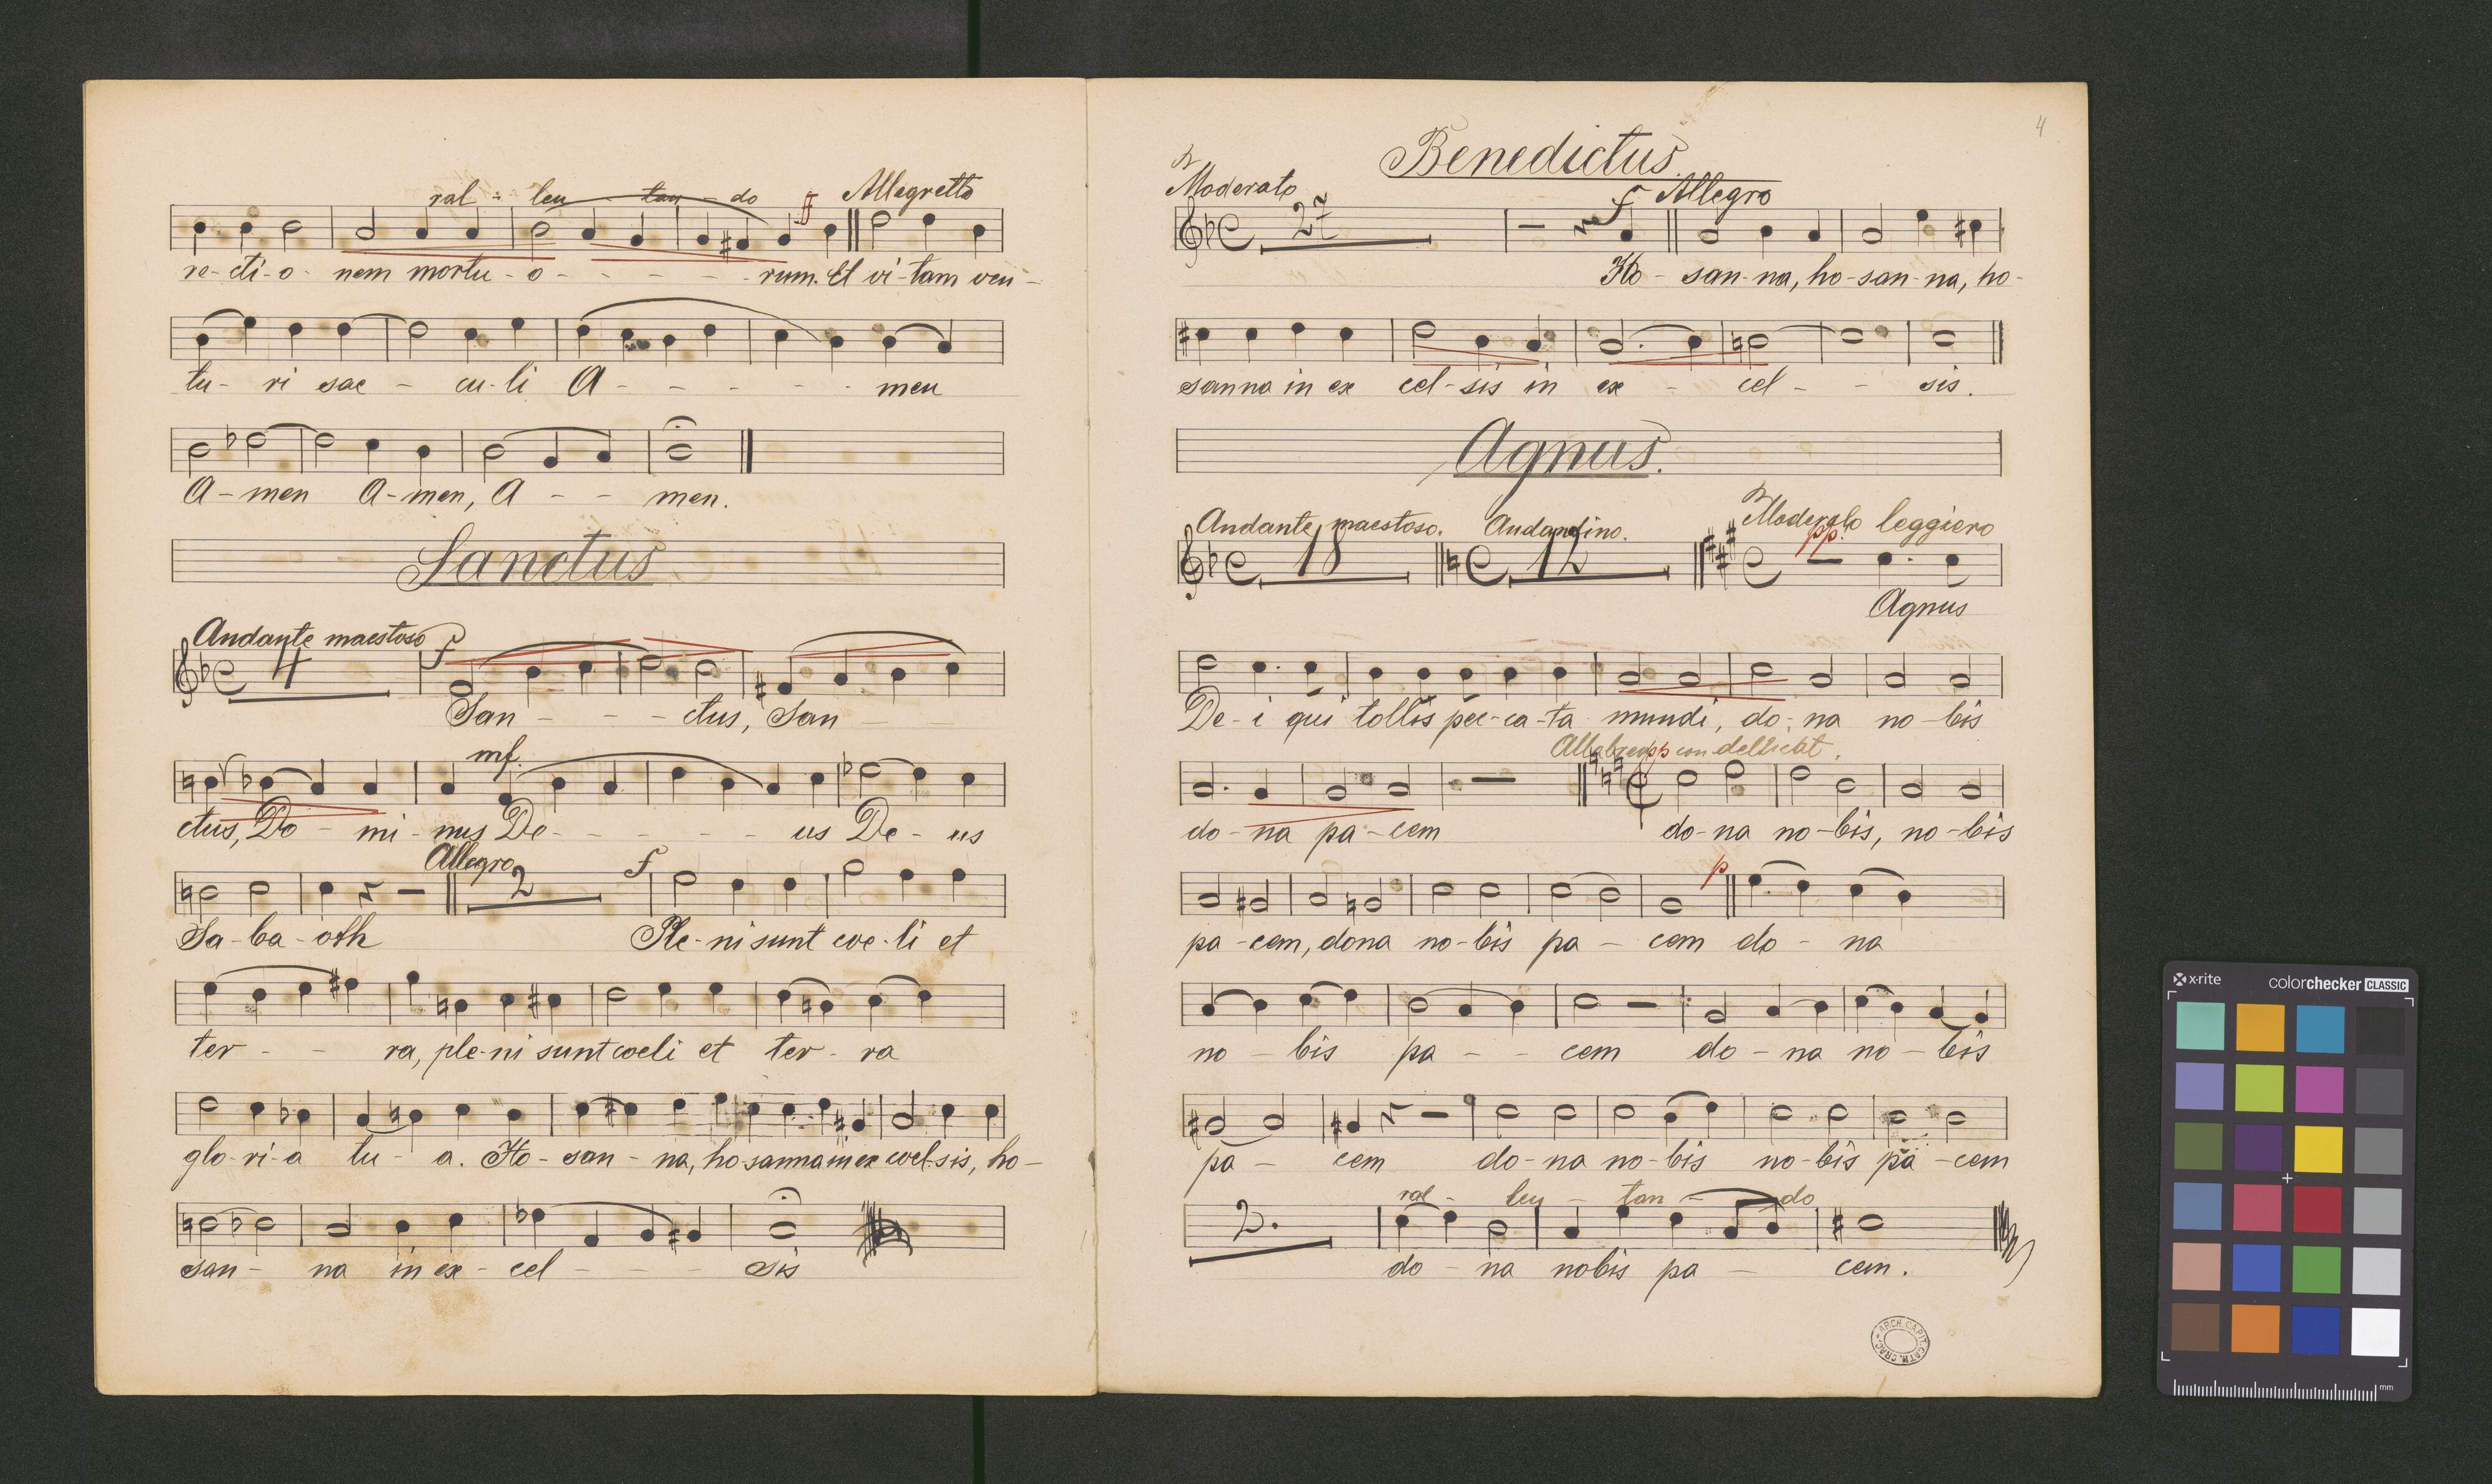 ral - len - tan - do ff Allegretto
re-cti-o- nem mortu-o- - - - - rum. Et vi-tam ven-
tu- ri sae - cu-li A- - - - - men
A-men A-men, A - - men.
Sanctus
Andante maestoso f
4
San - - - ctus, San - -
mf.
ctus, Do- mi- nus De- - - - - us De- us
Allegro 2 f
Sa-ba-oth Ple-ni sunt coe-li et
ter - - ra, ple-ni sunt coeli et ter- ra
glo-ri-a tu- a. Ho-san-na, ho-sanna in ex coel-sis, ho-
san- na in ex- cel - - - sis
4
Benedictus.
Moderato f Allegro
27
Ho- san-na, ho-san-na, ho-
sanna in ex cel-sis in ex - cel - - sis.
Agnus.
Andante maestoso. Andantino. Moderato leggiero
18 12 pp.
Agnus
De-i qui tollis pec-ca-ta mundi, do-na no-bis
pp con
do-na pa-cem do-na no-bis, no-bis
p
pa-cem, dona no-bis pa - cem do - na
no - bis pa - - cem do - na no - bis
pa - cem do-na no-bis no-bis pa-cem
ral - len - tan - do
2.
do - na nobis pa - cem.
ARCH. CAPIT. CATH. CRAC.
x-rite colorchecker CLASSIC
mm